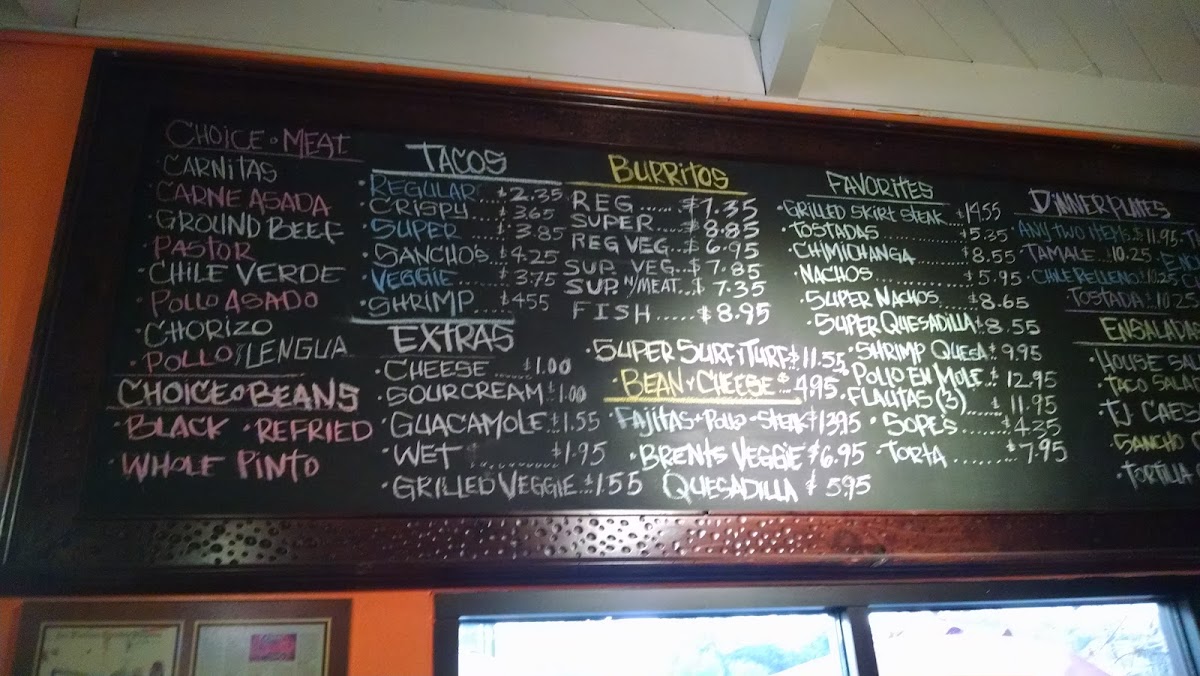 CHOICE • MEAT
• CARNITAS
• CARNE ASADA
• GROUND BEEF
• PASTOR
• CHILE VERDE
• POLLO ASADO
• CHORIZO
• POLLO LENGUA
CHOICE O BEANS
• BLACK • REFRIED
• WHOLE PINTO
TACOS
• REGULAR $2.35
• CRISPY.....$3.65
• SUPER.....$3.85
• SANCHO'S..$4.25
• VEGGIE.....$3.75
• SHRIMP....$4.55
EXTRAS
• CHEESE.....$1.00
• SOUR CREAM..$1.00
• GUACAMOLE..$1.55
• WET...........$1.95
• GRILLED VEGGIE...$1.55
BURRITOS
REG......$7.35
SUPER....$8.85
REG VEG...$6.95
SUP. VEG...$7.85
SUP. N/MEAT...$7.35
FISH.....$8.95
• SUPER SURF Y TURF $11.55
• BEAN Y CHEESE $4.95
• FAJITAS • POLLO • STEAK $13.95
• BRENTS VEGGIE $6.95
QUESADILLA $5.95
FAVORITES
• GRILLED SKIRT STEAK...$14.55
• TOSTADAS...........$5.35
• CHIMICHANGA........$8.55
• NACHOS............$5.95
• SUPER NACHOS.....$8.65
• SUPER QUESADILLA $8.55
• SHRIMP QUESA $9.95
• POLLO EN MOLE.$12.95
• FLAUTAS (3).....$11.95
• SOPE'S.......$4.35
• TORTA.........$7.95
DINNER PLATES
• ANY TWO ITEMS..$11.95
• TAMALE..10.25
• CHILE RELLENO $10.25
TOSTADA $10.25
ENSALADA
• HOUSE
• TACO
• TJ
• SANCHO
• TORTILLA